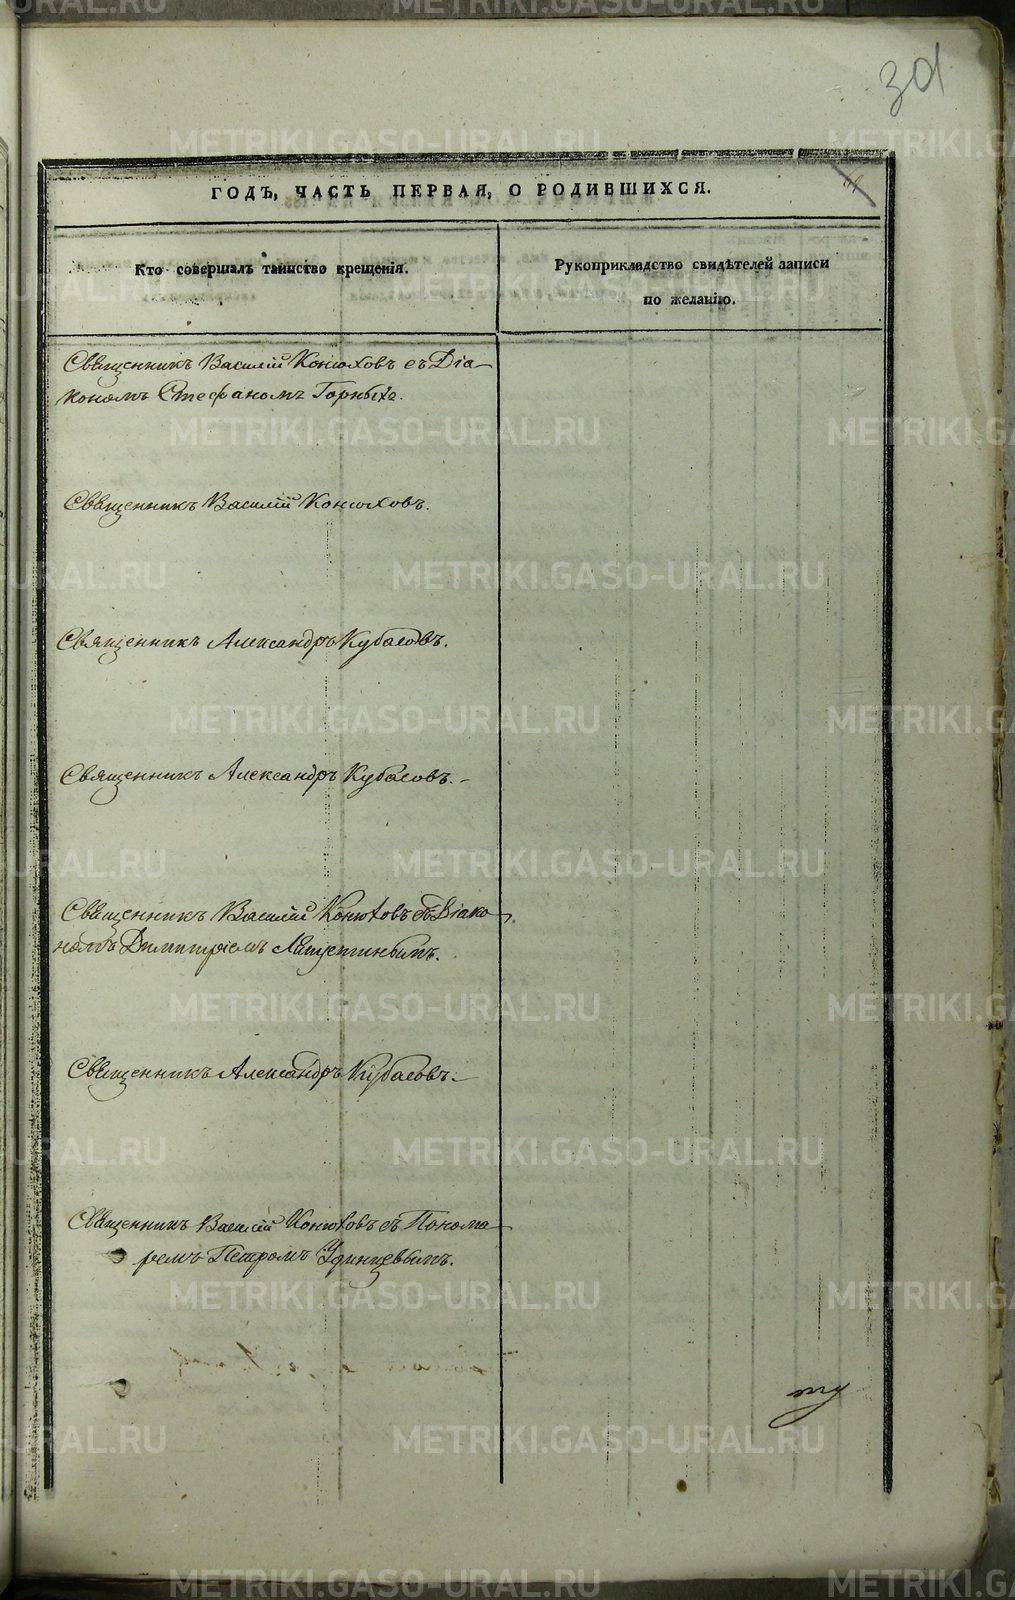 301
ГОДЪ, ЧАСТЬ ПЕРВАЯ, О РОДИВШИХСЯ.
Кто совершалъ таинство крещенія.
Рукоприкладство свидѣтелей записи
по желанію.
Священникъ Василій Конюховъ съ Діа-
кономъ Стефаномъ Горныхъ.
Священникъ Василій Конюховъ.
Священникъ Александръ Кубасовъ.
Священникъ Александръ Кубасовъ.-
Священникъ Василій Конюховъ съ Діако-
номъ Димитріемъ
Священникъ Александръ Кубасовъ.-
Священникъ Василій Конюховъ съ Понома-
ремъ Петромъ Удинцевымъ.
METRIKI.GASO-URAL.RU